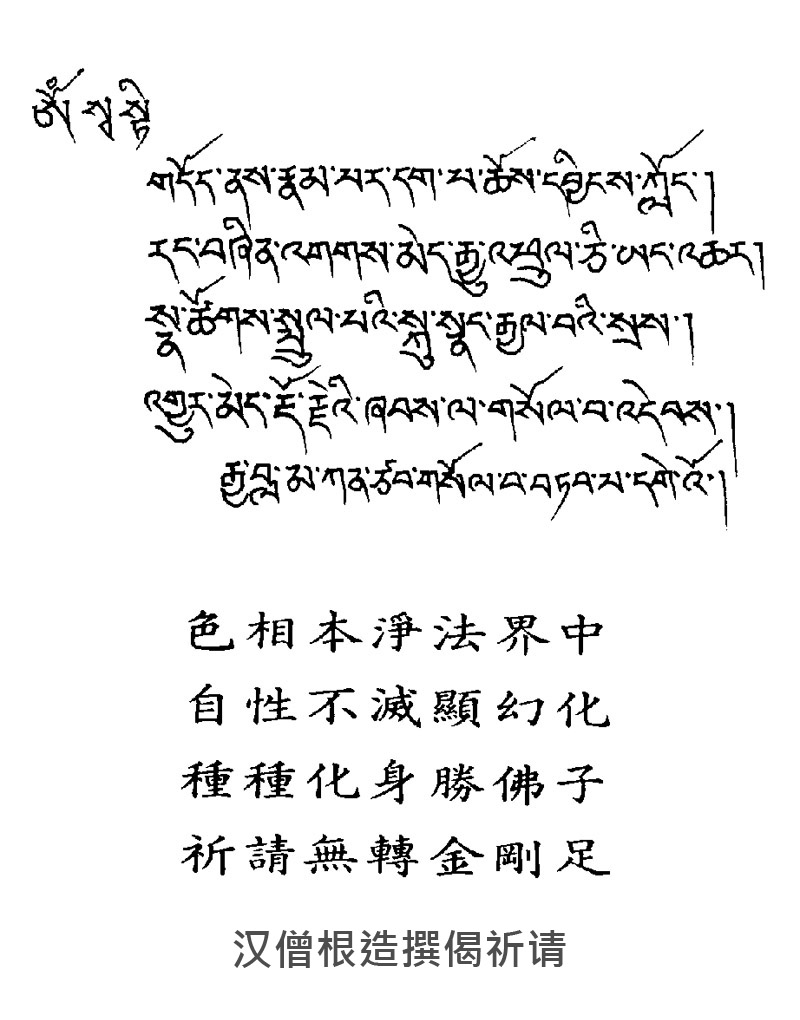 ཨོཾ་སྭ་སྟི
གདོད་ནས་རྣམ་པར་དག་པ་ཆོས་དབྱིངས་ཀློང་།
རང་བཞིན་འགགས་མེད་རྒྱུ་འཕྲུལ་ཅི་ཡང་འཆར།
སྣ་ཚོགས་སྤྲུལ་པའི་སྐུ་སྣང་རྒྱལ་བའི་སྲས་།
འགྱུར་མེད་རྡོ་རྗེའི་ཞབས་ལ་གསོལ་བ་འདེབས་།
རྒྱ་བླ་མ་ཀན་ཙབ་གསོལ་བ་བཏབ་པ་དགེ་འོ་།
色相本淨法界中
自性不滅顯幻化
種種化身勝佛子
祈請無轉金剛足
汉僧根造撰偈祈请